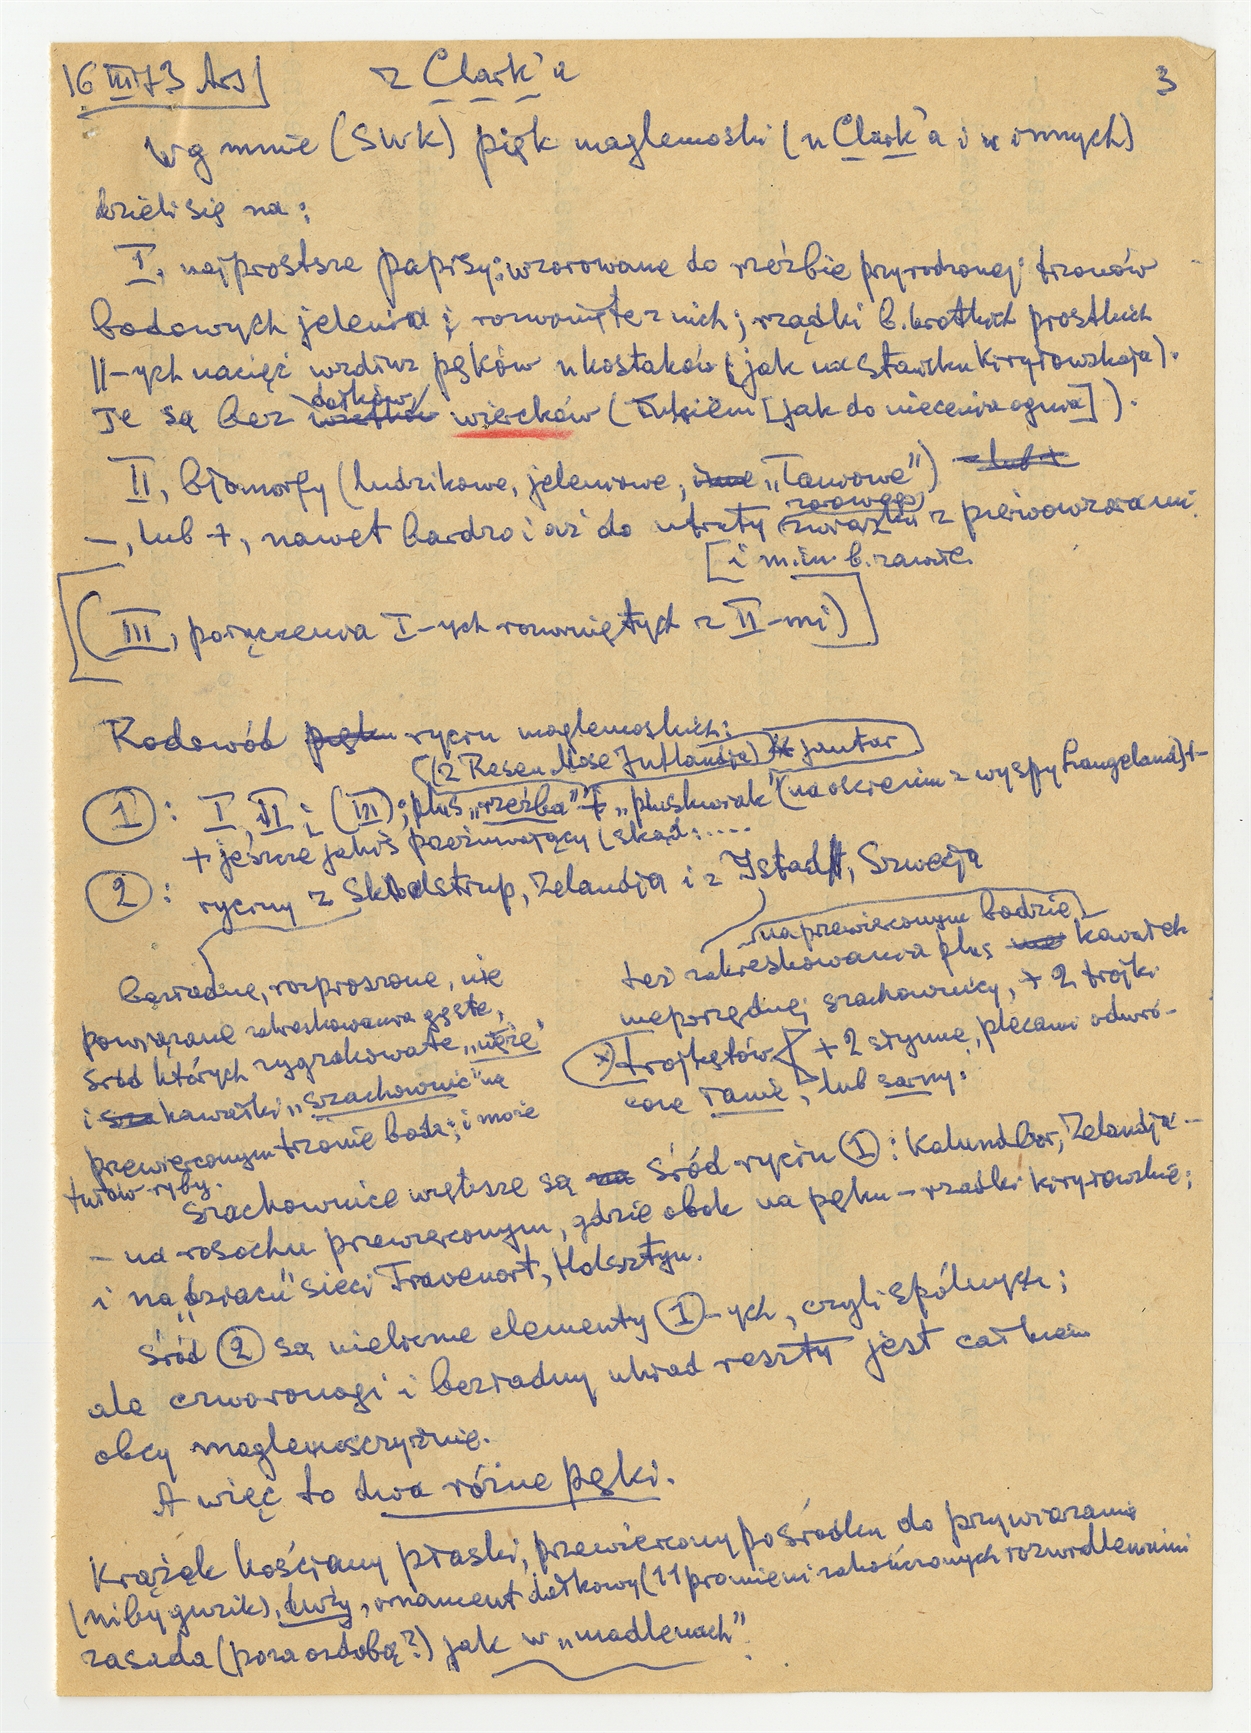 16 III 73 Ars]
z Clark'a
3
Wg mnie (SWK) pięk maglemoski (u Clark'a i u innych)
dzieli się na:
I, najprostsze papisy: wzorowane do rzeźbie przyrodzonej trzonów
bodowych jelenia i rozwinięte z nich; rządki b. krótkich prostkich
||-ych nacięć wzdłuż pęków u kostaków (jak na Stawku Kiryłowskaja).
Te są bez dołków wiercków ( [jak do niecenia ognia]).
II, biomorfy (ludzikowe, jeleniowe, „Tawowe") lub +
–, lub +, nawet bardzo i aż do utraty związku z pierwowzorami
[i m.in. b. zawił.
[(III, połączenia I-ych rozwiniętych z II-mi)]
Rodowód ryciu maglemoskich:
(z Resen Mose Jutlandia) jantar
1: I, II; (III); plus „rzeźba" + „pluskwiak" (na oskrem z wyspy Langeland) +
+ jeszcze jakiś przeżuwający (skąd:....
2: ryciny z Skalstrup, Zelandia i z Istad, Szwecja
na przewierconym bodzie
bezładne, rozproszone, nie
powiązane zakreskowania gęste,
śród których zygzakowate „węże"
i kawałki „szachownic" na
przewierconym trzonie bodz; i może
tułów ryby.
też zakreskowania plus kawałek
nieporządnej szachownicy, + 2 trójki
trojkątów + 2 słynne, plecami odwró-
cone łanie, lub sarny.
Szachownice większe są śród ryciu 1: Kalundbor, Zelandja –
– na rosochu przewierconym, gdzie obok na pęku – rządki kiryłowskie;
i na „bziacu" sieci Travenort, Holsztyn.
Śród 2 są nieliczne elementy 1-ych, czyli spólnych;
ale czworonogi i bezładny układ reszty jest całkiem
obcy maglemoszczyźnie.
A więc to dwa różne pęki.
Krążek kościany płaski, przewiercony pośrodku do przywiązania
(niby guzik), duży, ornament dołkowy (11 promieni zakończonych rozwidleniami
zasada (poza ozdobą?) jak w „madlenach".